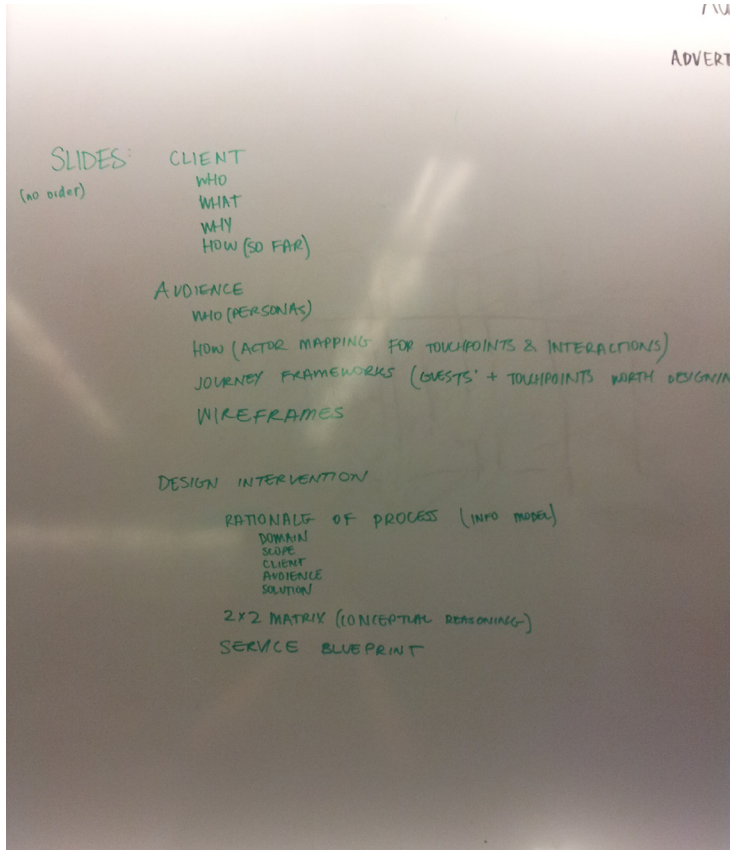 ADVERT
SLIDES: CLIENT
(no order)
WHO
WHAT
WHY
HOW (SO FAR)
AUDIENCE
WHO (PERSONAS)
HOW (ACTOR MAPPING FOR TOUCHPOINTS & INTERACTIONS)
JOURNEY FRAMEWORKS (GUESTS' + TOUCHPOINTS WORTH DESIGNIN
WIREFRAMES
DESIGN INTERVENTION
RATIONALE OF PROCESS (INFO MODEL)
DOMAIN
SCOPE
CLIENT
AUDIENCE
SOLUTION
2x2 MATRIX (CONCEPTUAL REASONING)
SERVICE BLUEPRINT